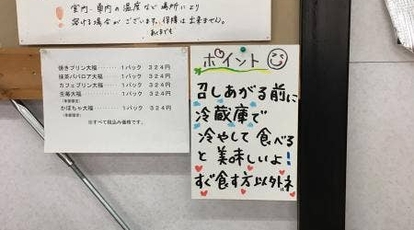 室内・車内の温度など場所により
溶ける場合がございます。保障は出来ません。
あくまでも
焼きプリン大福‥‥‥‥1パック 324円
抹茶ババロア大福‥‥‥1パック 324円
カフェプリン大福‥‥‥1パック 324円
生苺大福‥‥‥‥‥‥1パック 324円
(季節限定)
かぼちゃ大福‥‥‥‥‥1パック 324円
(季節限定)
※すべて税込み価格です。
ポイント
召しあがる前に
冷蔵庫で
冷やして食べる
と美味しいよ!
すぐ食す方以外ネ